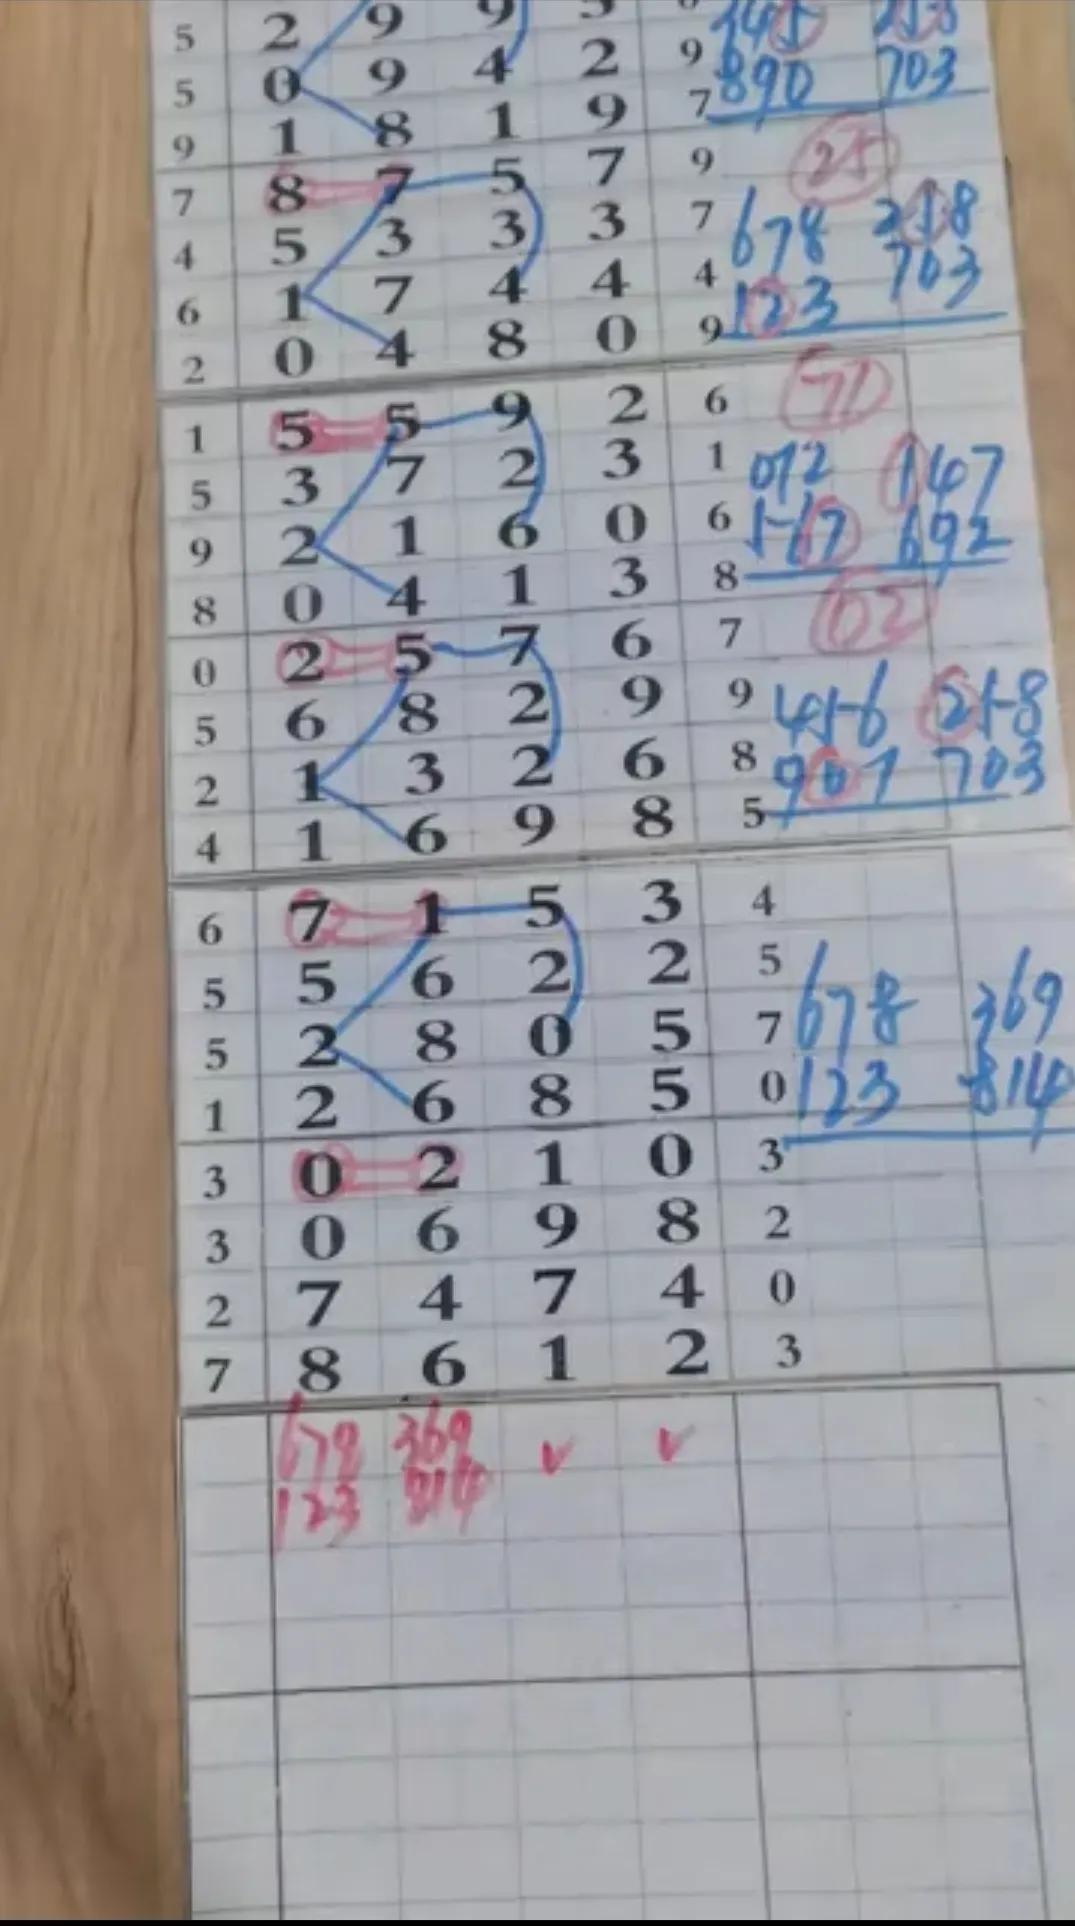 5 2 9 9
5 0 9 4 2 9 890 703
9 1 8 1 9 7
25
7 8 7 5 7 9
4 5 3 3 3 7 678 258
6 1 7 4 4 4 123 703
2 0 4 8 0 9
1 5 5 9 2 6 71
5 3 7 2 3 1 012 147
9 2 1 6 0 6 567 692
8 0 4 1 3 8
0 2 5 7 6 7 02
5 6 8 2 9 9 456 258
2 1 3 2 6 8 901 703
4 1 6 9 8 5
6 7 1 5 3 4
5 5 6 2 2 5
5 2 8 0 5 7 678 369
1 2 6 8 5 0 123 814
3 0 2 1 0 3
3 0 6 9 8 2
2 7 4 7 4 0
7 8 6 1 2 3
678 369 ✓ ✓
123 814